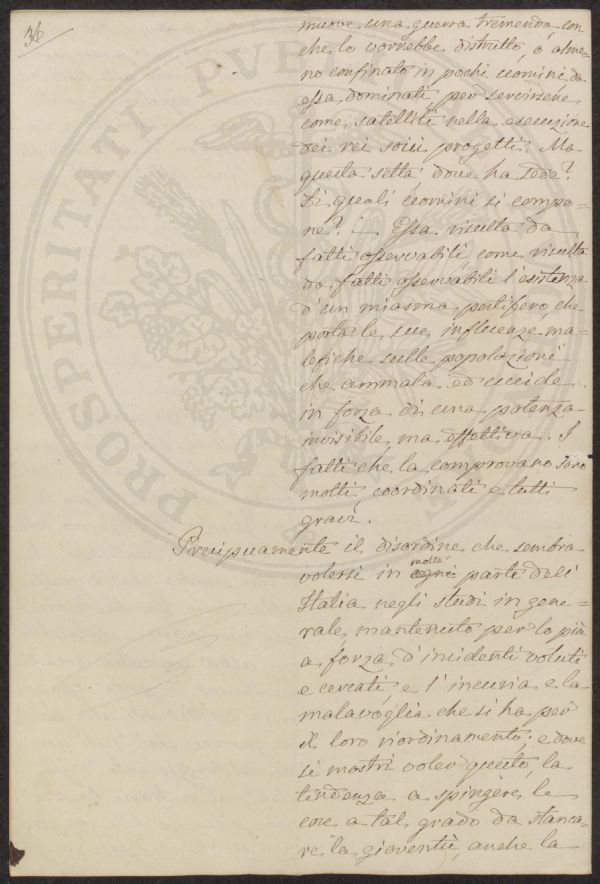 36
muove una guerra tremenda, con
che lo vorrebbe distrutto, o alme=
no confinato in pochi uomini da
essa dominati, per servirsene
come satelliti nella esecuzione
dei rei suoi progetti. Ma
questa setta dove ha sede?
Di quali uomini si compo=
ne? — Essa risulta da
fatti osservabili, come risulta
da fatti osservabili l'esistenza
d'un miasma pestifero, che
porta le sue influenze ma=
lefiche sulle popolazioni
che ammala ed uccide
in forza di una potenza
invisibile, ma effettiva. I
fatti che la comprovano sono
molti, coordinati e tutti
gravi.
Precipuamente il disordine che sembra
volersi in molte parti dell'
Italia negli studi in gene=
rale, mantenuto per lo più
a forza d'incidenti voluti
e cercati, e l'incuria e la
malavoglia che si ha per
il loro riordinamento; e dove
si mostri voler questo, la
tendenza a spingere le
cose a tal grado da stanca=
re la gioventù, anche la
PROSPERITATI PVBL